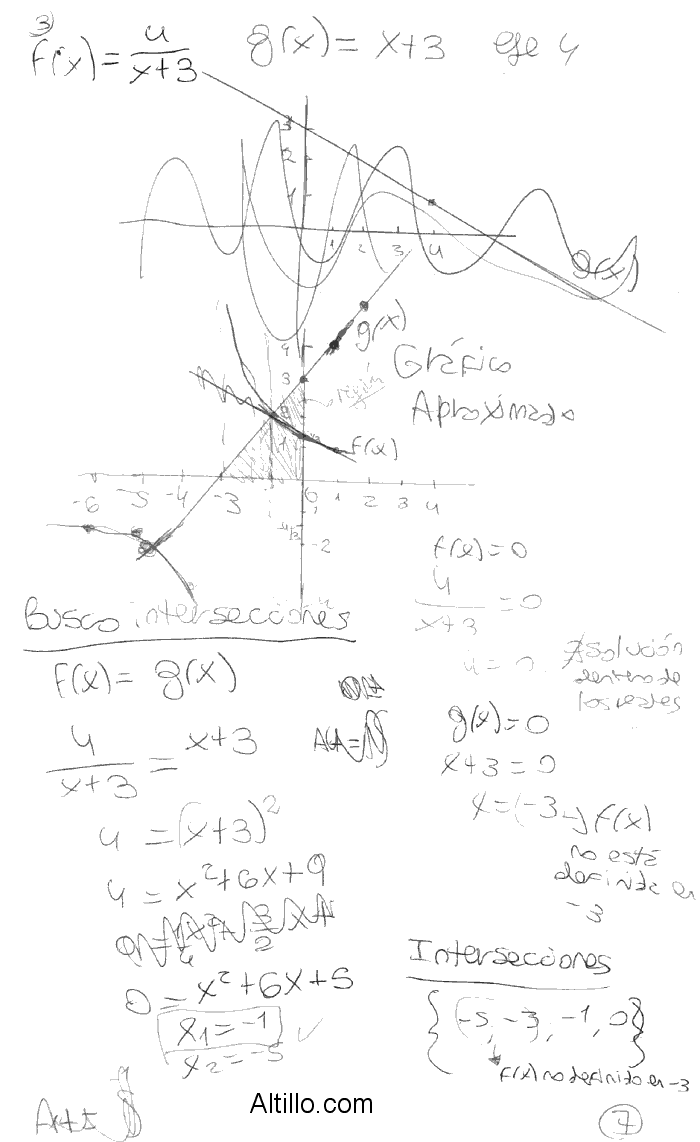 3)
f(x) = 4/(x+3)   g(x) = x+3   eje y
3
2
1
1 2 3 4
g(x)
g(x)
4
3
Gráfico
Aproximado
región
f(x)
-6 -5 -4 -3 0 1 2 3 4
-4/3
-2
Busco intersecciones
f(x) = g(x)
4/(x+3) = x+3
4 = (x+3)²
4 = x²+6x+9
0 = x²+6x+5
x₁ = -1
x₂ = -5
f(x) = 0
4/(x+3) = 0
4 = 0 ∄ solución
dentro de
los reales
g(x) = 0
x+3 = 0
x = -3 → f(x)
no está
definida en
-3
Intersecciones
{-5, -3, -1, 0}
f(x) no definido en -3
Altillo.com
7